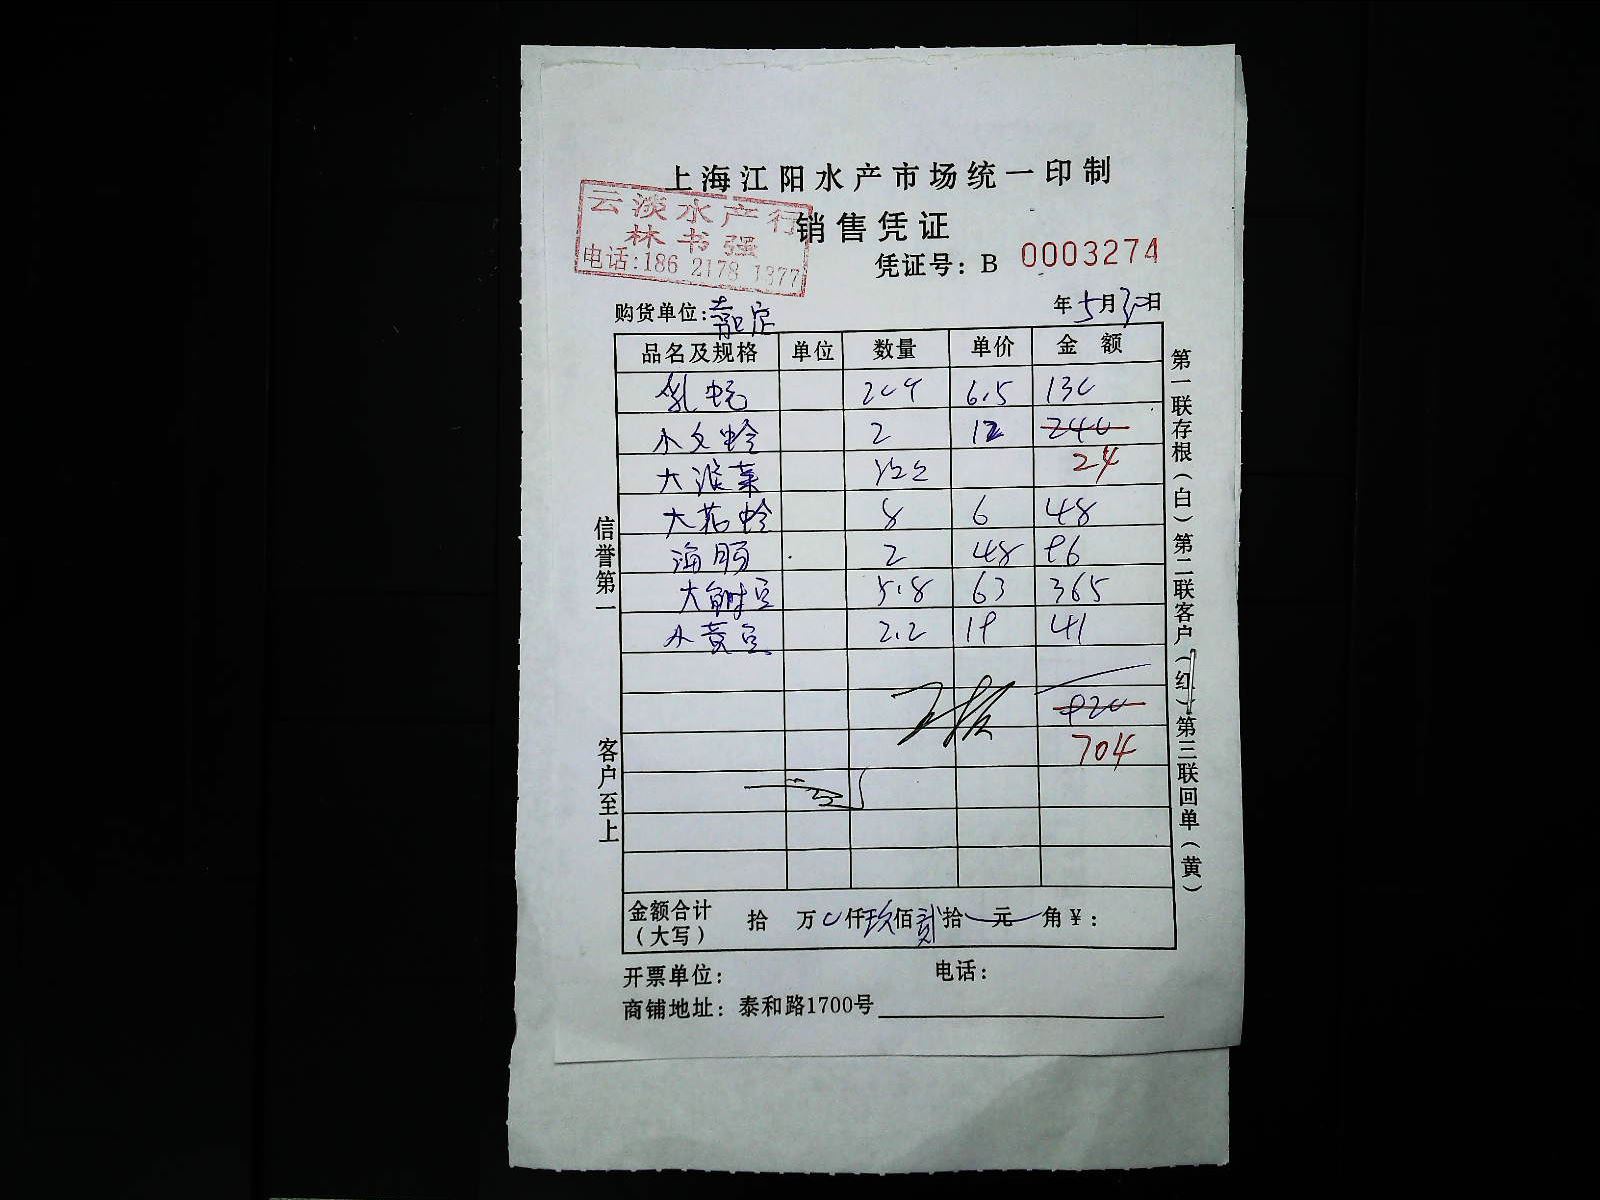 上海江阳水产市场统一印制
云淡水产行
林书强
电话:186 2178 1377
销售凭证
凭证号: B 0003274
购货单位:嘉定 年5月30日
品名及规格 单位 数量 单价 金额
乳蚝 20个 6.5 130
小文蛤 2 12 240
24
大菠菜
大花蛤 8 6 48
海肠 2 48 96
大鲍豆 5.8 63 365
小黄豆 2.2 19 41
920
704
金额合计(大写) 拾 万0仟玖佰贰拾 元 角¥:
开票单位: 电话:
商铺地址: 泰和路1700号
信誉第一
客户至上
第一联存根(白)第二联客户(红)第三联回单(黄)